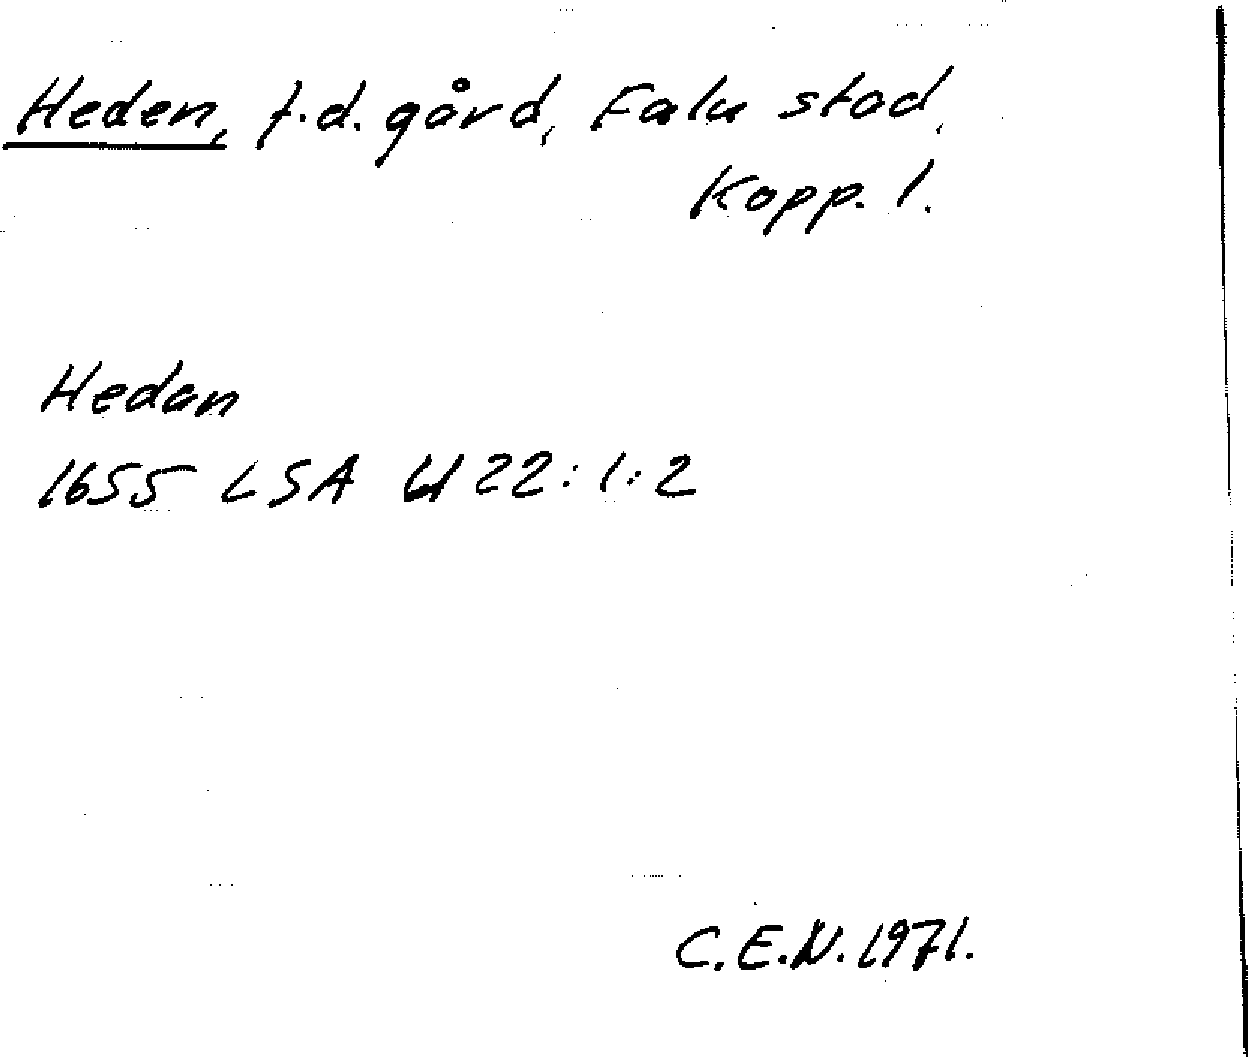 Heden, f.d. gård, Falu stad,
Kopp. l.
Hedan
1655 LSA U 22:1:2
C.E.N. 1971.